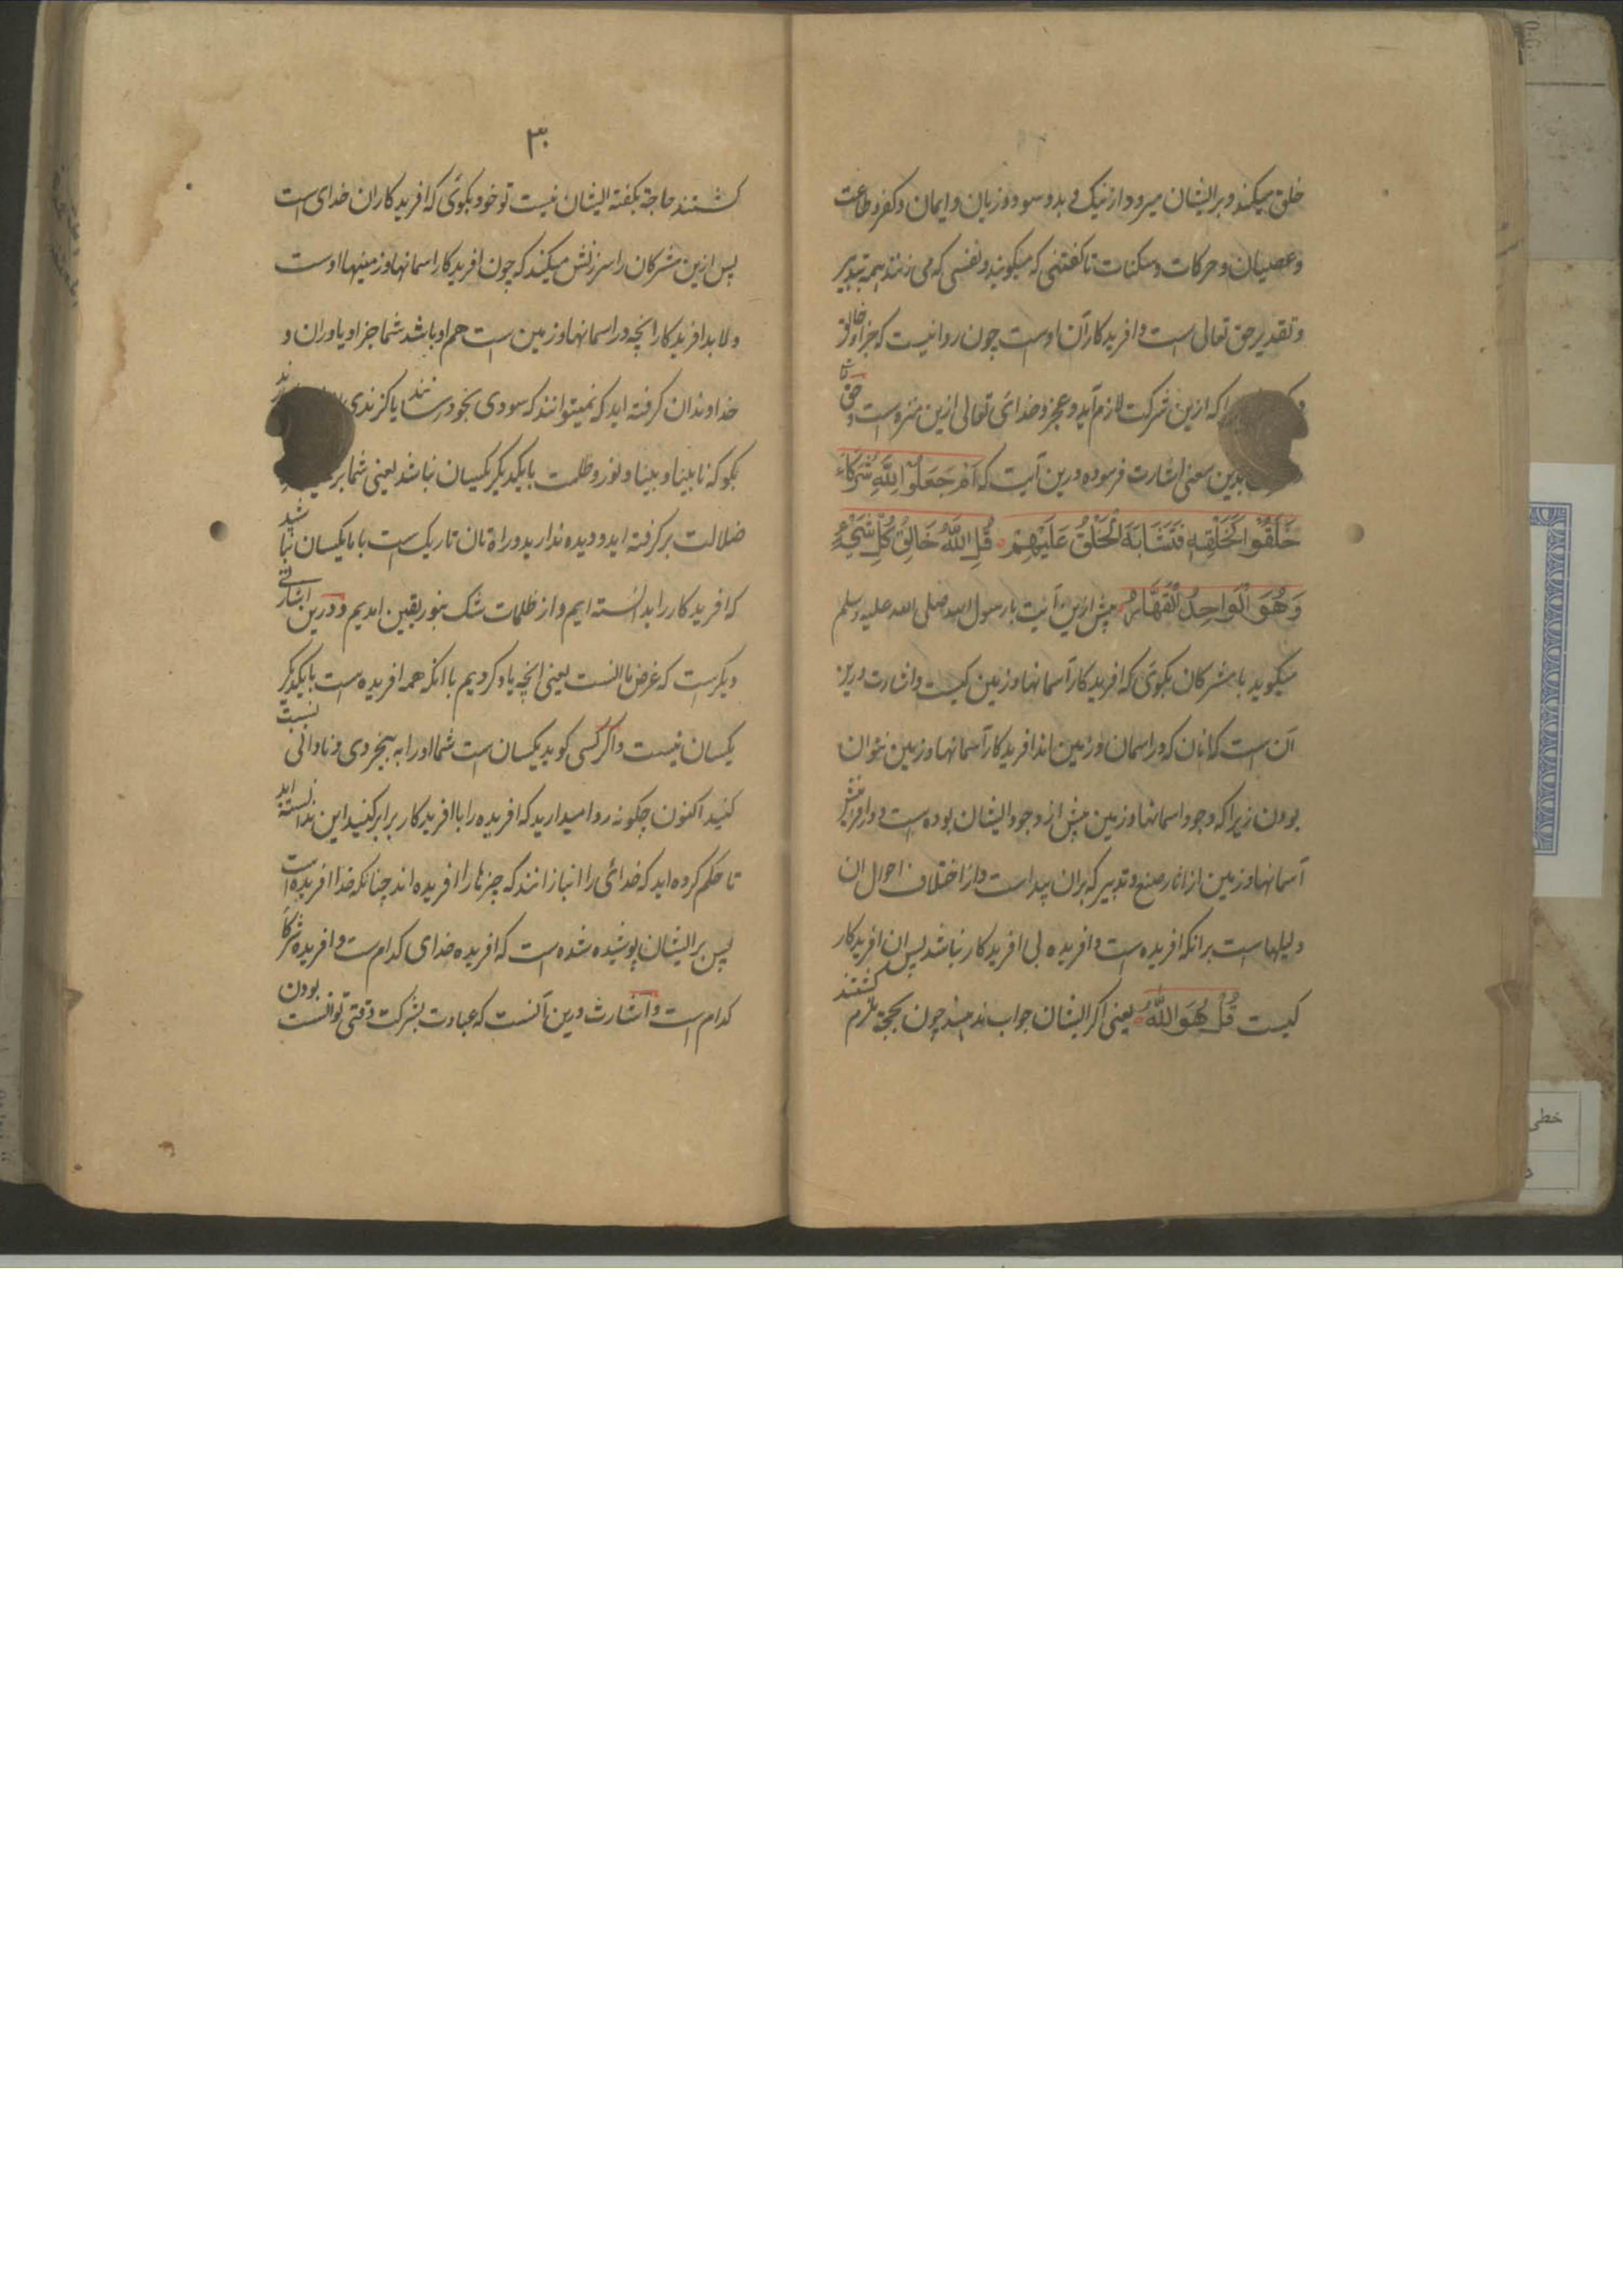 خلق میکند و بر ایشان میرود از نیک و بد و سود و زیان و ایمان و کفر و طاعت
و عصیان و حرکات و سکنات تا کفتنی که میکویند و نفسی که می زنند همه بتدبیر
و تقدیر حق تعالی است و افریدکار آن اوست چون روا نیست که جز او خالق
که ازین شرکت لازم آید و عجز و خدائ تعالی ازین منزه است و حق
بدین معنی اشارت فرموده درین آیت که اَمْ جَعَلُوْا لِلّٰهِ شُرَكَآءَ
خَلَقُوْا كَخَلْقِهٖ فَتَشَابَهَ الْخَلْقُ عَلَيْهِمْ قُلِ اللّٰهُ خَالِقُ كُلِّ شَيْءٍ
وَهُوَ الْوَاحِدُ الْقَهَّارُ پیش ازین آیت با رسول الله صلی الله علیه وسلم
میکوید با مشرکان بکوی که افریدکار آسمانها و زمین کیست و اشارت درین
آن است که انان که در اسمان و زمین اند افریدکار آسمانها و زمین نتوان
بودن زیرا که وجود اسمانها و زمین پیش از وجود ایشان بوده است و در افرینش
آسمانها و زمین از اثار صنع و تدبیر که بران پیداست و از اختلاف احوال ان
دلیلهاست بر انکه افریده است و افریده بی افریدکار نباشد پس ان افریدکار
کیست قُلْ هُوَ اللّٰهُ یعنی اکر ایشان جواب ندهند چون بحجة ملزم کشتند
۳۰
کشتند حاجة بکفته ایشان نیست تو خود بکوی که افریدکاران خدای است
پس ازین مشرکان را سرزنش میکند که چون افریدکار اسمانها و زمینها اوست
و لابد افریدکار انچه در اسمانها و زمین است هم او باشد شما جز او یاوران و
خداوندان کرفته اید که نمیتوانند که سودی بخود رسانند یا کزندی
بکو که نابینا و بینا و نور و ظلمت با یکدیکر یکسان نباشد یعنی شما
ضلالت بر کرفته اید و دیده ندارید و راه تان تاریک است با ما یکسان نباشید
که افریدکار را بدانسته ایم و از ظلمات شک بنور یقین امدیم و درین اشارتی
دیکرست که غرض ما انست یعنی انچه یاد کردیم با انکه همه افریده است با یکدیکر
یکسان نیست و اکر کسی کوید یکسان است شما او را به بیخردی و نادانی نسبت
کنید اکنون چکونه روا میدارید که افریده را با افریدکار برابر کنید این ندانسته اید
تا حکم کرده اید که خدائ را انبازانند که چیزها را افریده اند چنانکه خدا افریده است
پس بر ایشان پوشیده شده است که افریده خدای کدام است و افریده شرکا
کدام است و اشارت درین آنست که عبادت بشرکت وقتی توانست بودن
خطی